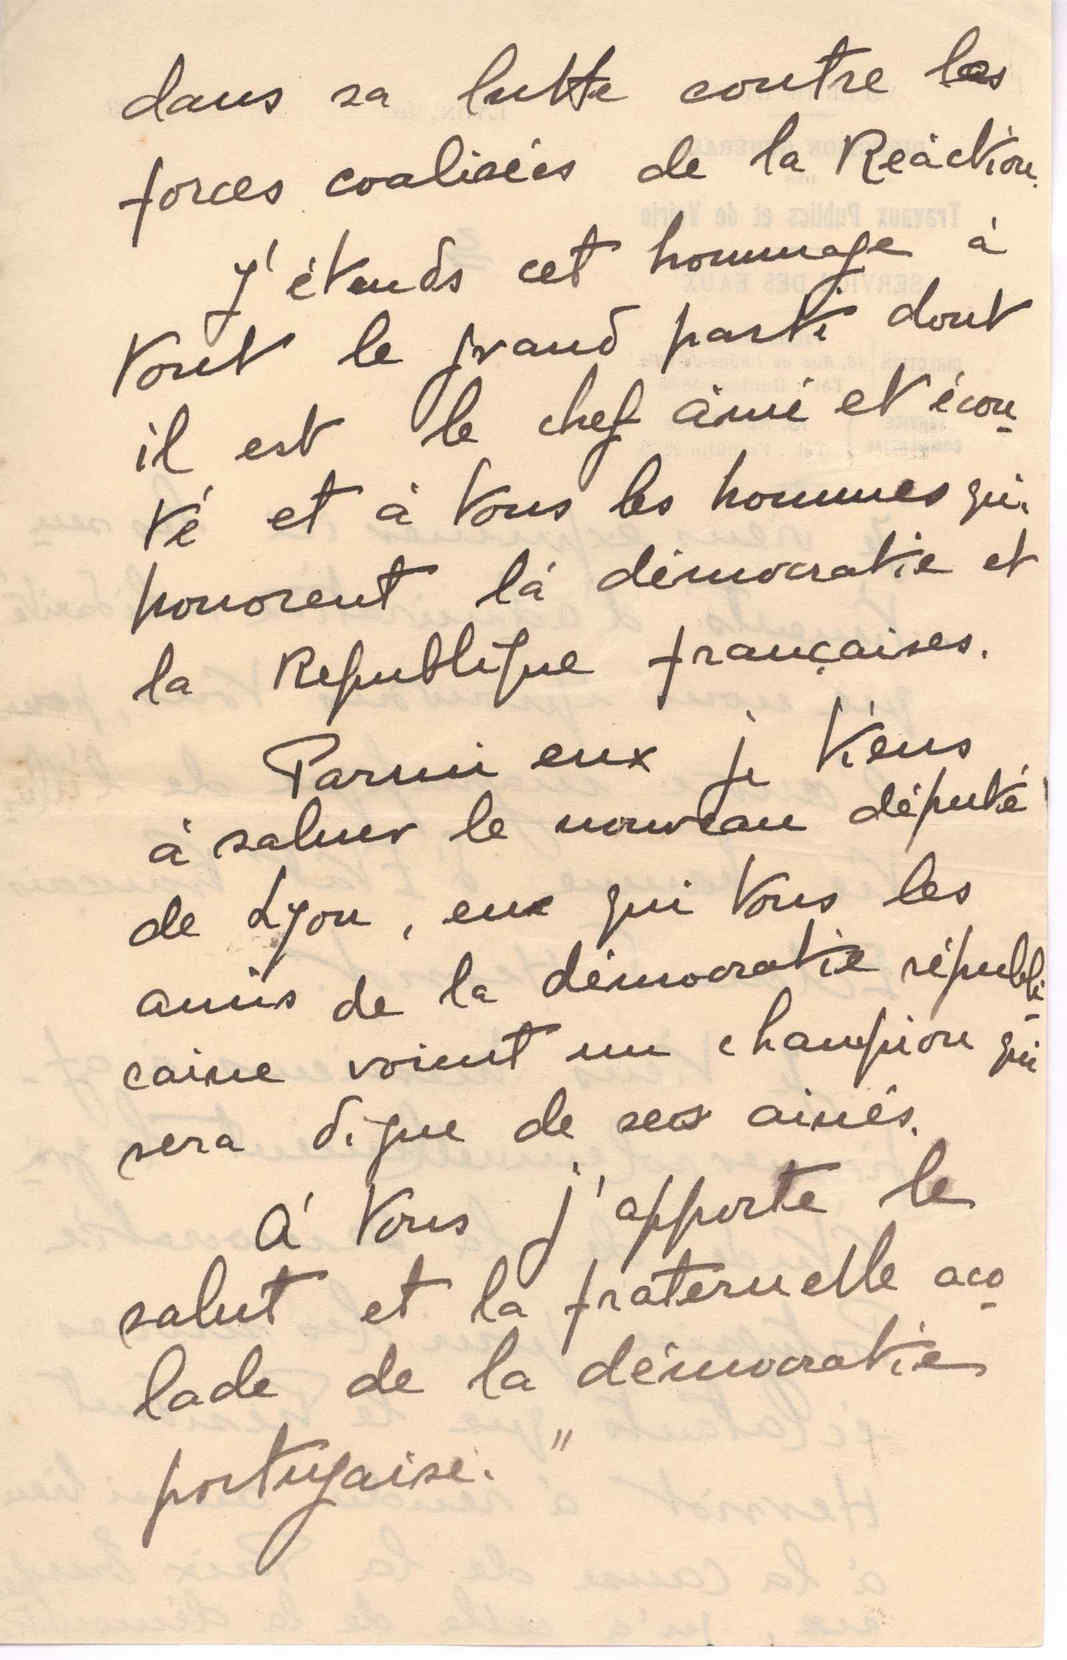 dans sa lutte contre les
forces coalisées de la Réaction.
J'étends cet hommage à
tout le grand parti dont
il est le chef aimé et écou-
té et à tous les hommes qui
honorent la démocratie et
la Republique françaises.
Parmi eux je tiens
à saluer le nouveau député
de Lyon, en qui tous les
amis de la démocratie républi-
caine voient un champion qui
sera digne de ses ainés.
A vous j'apporte le
salut et la fraternelle aco-
lade de la démocratie
portugaise."